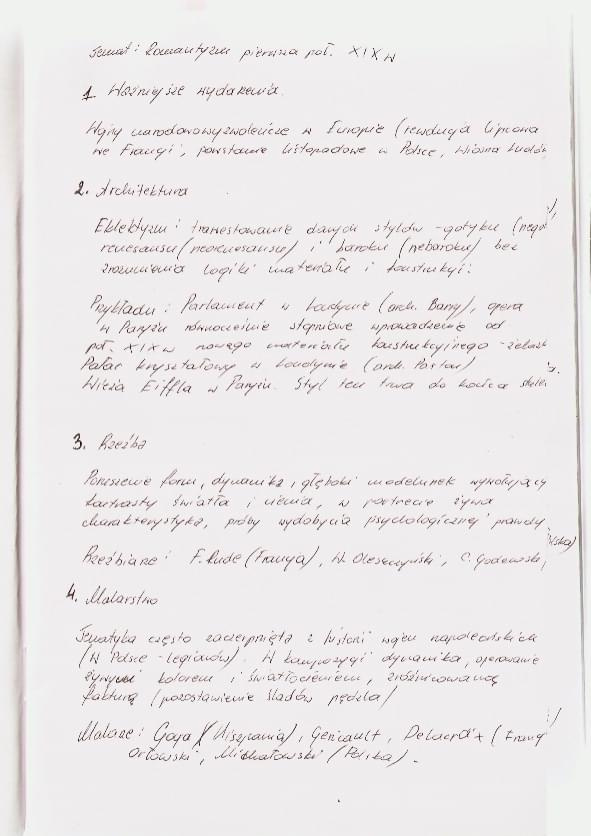 Temat: Romantyzm pierwsza poł. XIX w
1. Ważniejsze wydarzenia.
Wojny narodowowyzwoleńcze w Europie (rewolucja lipcowa
we Francji, powstanie listopadowe w Polsce, Wiosna Ludów
2. Architektura
Eklektyzm: trawestowanie danych stylów - gotyku (neogo
renesansu (neorenesansu) i baroku (neobaroku) bez
zrozumienia logiki materiału i konstrukcji.
Przykłady: Parlament w Londynie (arch. Barry), opera
w Paryżu równocześnie stopniowe wprowadzenie od
poł. XIX w nowego materiału konstrukcyjnego - żelaza
Pałac kryształowy w Londynie (arch. Paxton)
Wieża Eiffla w Paryżu. Styl ten trwa do końca
3. Rzeźba
Poruszenie form, dynamika, głęboki modelunek wywołujący
kontrasty światła i cienia, w portrecie żywa
charakterystyka, próby wydobycia psychologicznej prawdy
Rzeźbiarze: F. Rude (Francja), W. Oleszczyński, C. Godewski
lska)
4. Malarstwo
Tematyka często zaczerpnięta z historii wojen napoleońskich
(w Polsce - legionów). W kompozycji dynamika, operowanie
żywymi kolorem i światłocieniem, zróżnicowaną
fakturą (pozostawienie śladów pędzla)
Malarze: Goya (Hiszpania), Gericault, Delacroix (Francj
Orłowski, Michałowski (Polska).